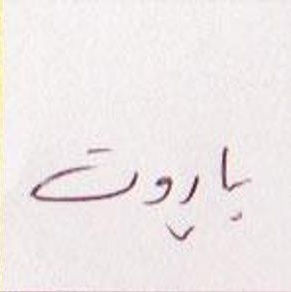 باڕوت